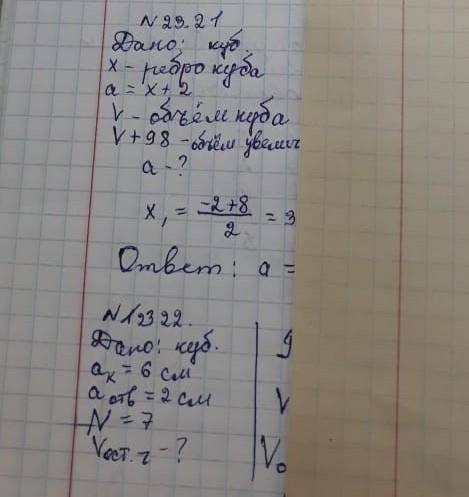 N 23.21
Дано: куб.
x - ребро куба
a = x + 2
V - объём куба
V + 98 - объём увелич
a - ?
x₁ = (-2+8)/2 = 3
Ответ: a =
N 12322.
Дано: куб.
aк = 6 см
a отв = 2 см
N = 7
Vост. ч - ?
V
V₀